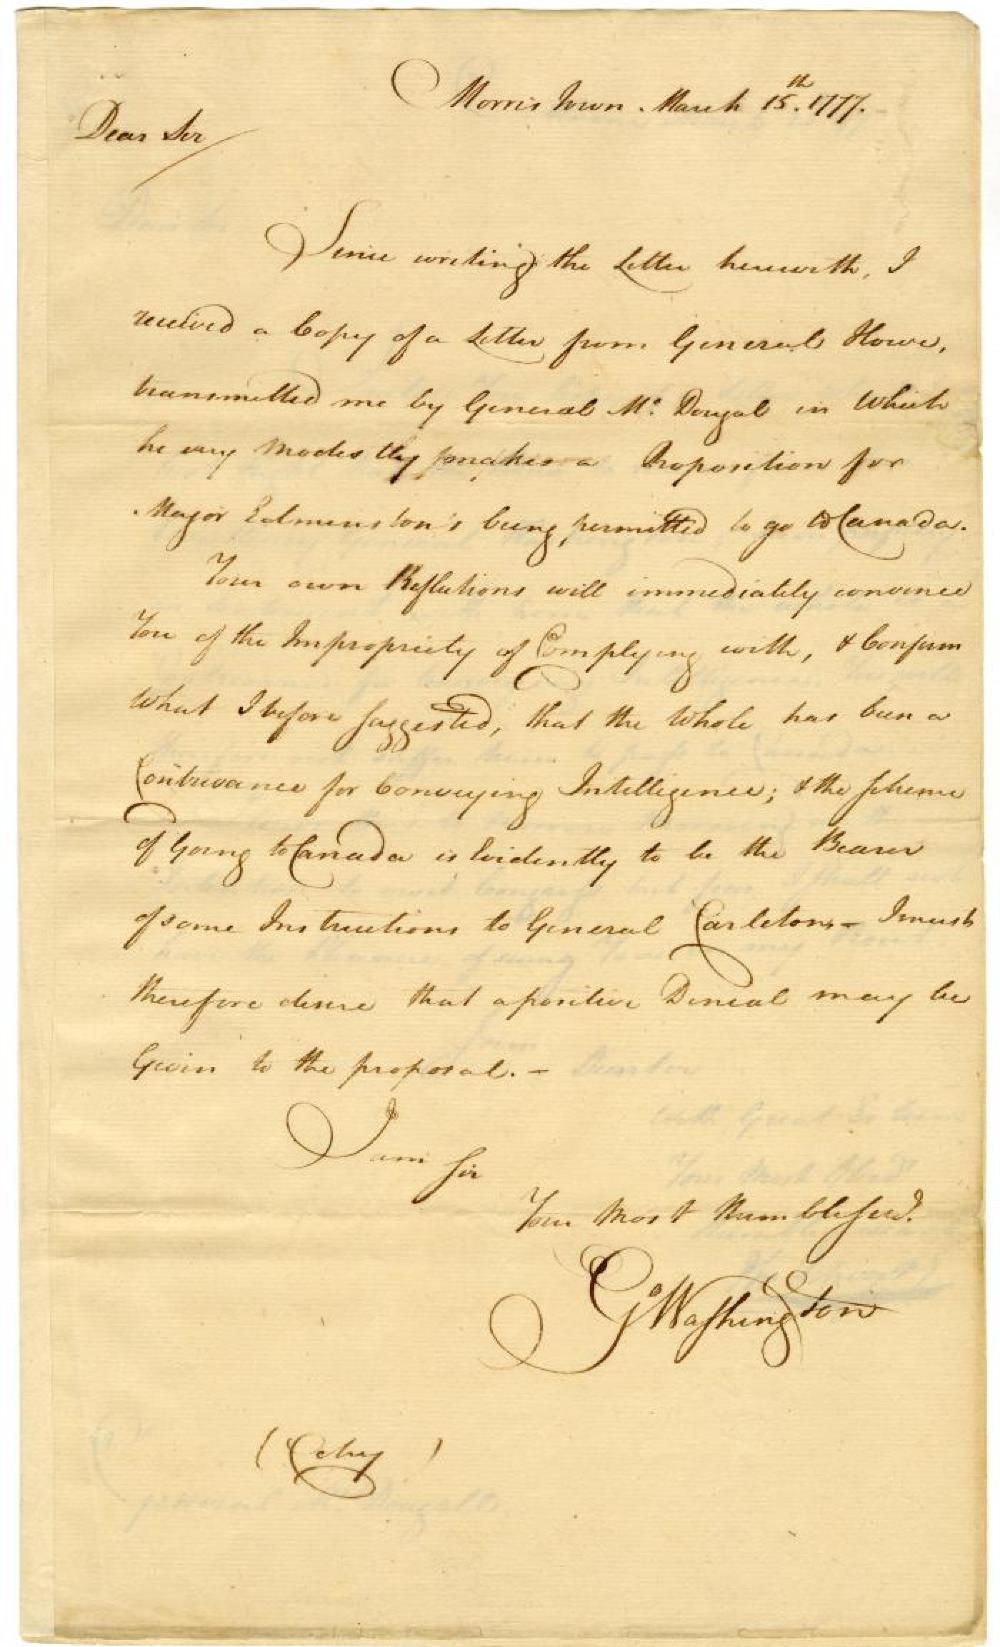 Morris Town March 15th. 1777.
Dear Sir
Since writing the Letter herewith, I
received a Copy of a Letter from General Howe,
transmitted me by General Mc. Dougal in Which
he very Modestly makes a Proposition for
Major Edmunston's being permitted to go to Canada.
Your own Reflections will immediately convince
You of the Impropriety of Complying with, & Confirm
What I before suggested, that the Whole has been a
Contrivance for Conveying Intelligence; & the scheme
of Going to Canada is Evidently to be the Bearer
of some Instructions to General Carleton – I must
therefore desire that a positive Denial may be
Given to the proposal. –
I am Sir
Your Most Humble Servt.
Go Washington
(Copy)